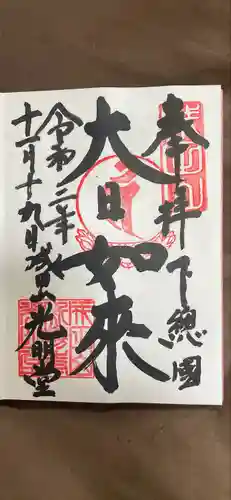 奉拝 下總國
大日如来
令和二年
十一月十九日 成田山光明堂